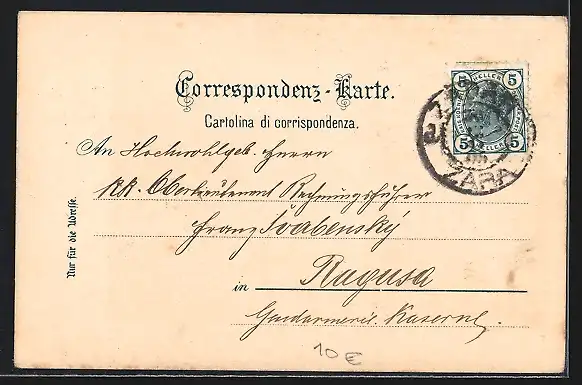 Correspondenz-Karte.
Cartolina di corrispondenza.
5 HELLER 5
5 HELLER 5
ZARA
An Hochwohlgeb. Herrn
kk. Oberlieutenant Rechnungsführer
Franz Svabenský
Nur für die Adresse.
in Ragusa
Gendarmerie Kaserne.
10 €